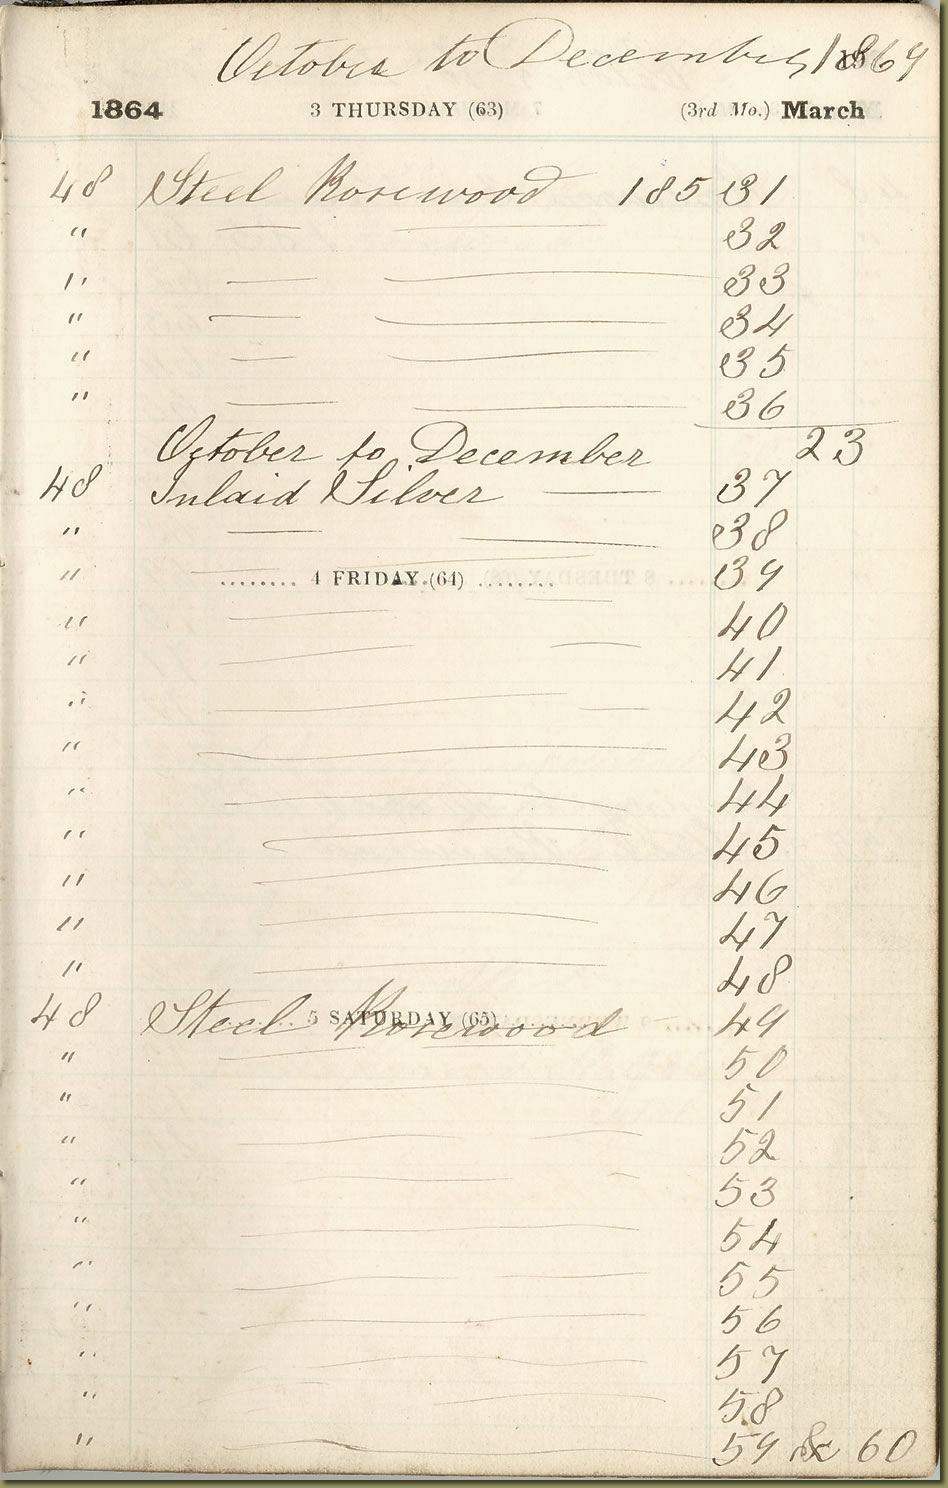 October to December 1864
1864 3 THURSDAY (63) (3rd Mo.) March
48 Steel Rosewood 18531
" 32
" 33
" 34
" 35
" 36
October to December 23
48 Inlaid Silver 37
" 38
" 4 FRIDAY (64) 39
" 40
" 41
" 42
" 43
" 44
" 45
" 46
" 47
" 48
48 Steel Rosewood 49
5 SATURDAY (65)
" 50
" 51
" 52
" 53
" 54
" 55
" 56
" 57
" 58
" 59 & 60